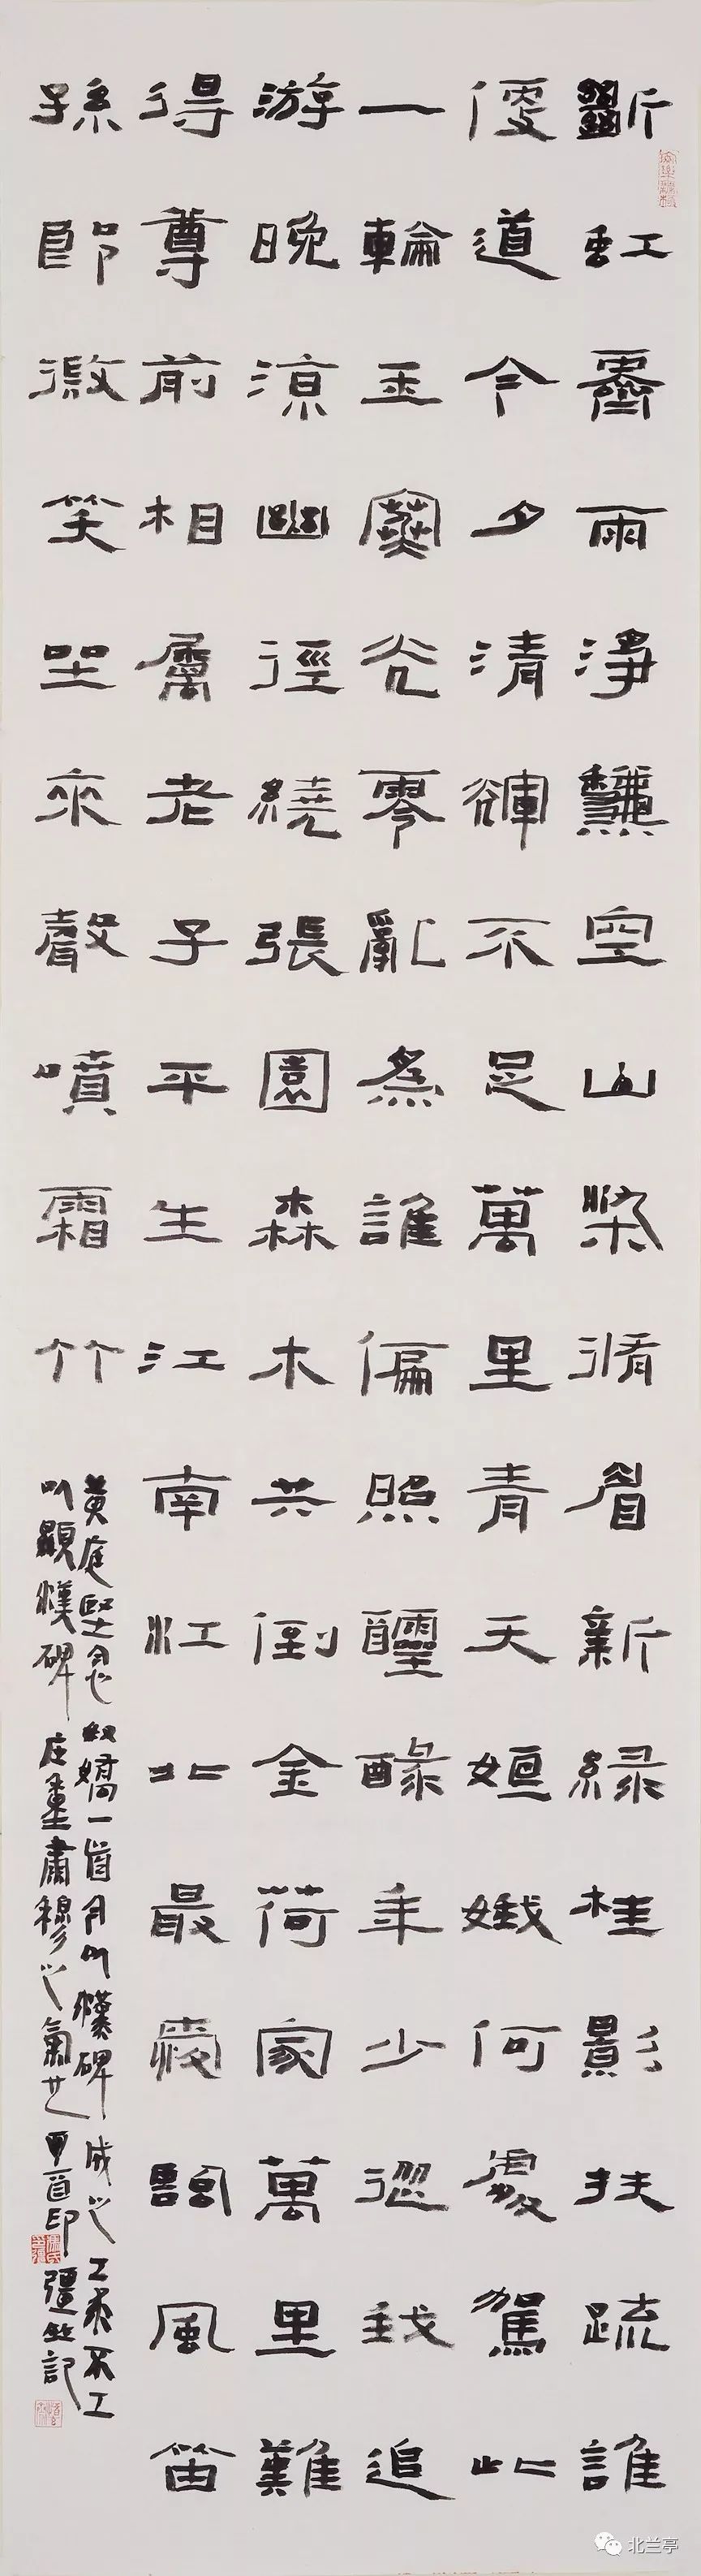 斷虹霽雨淨龝空山染脩眉新綠桂影扶疏誰
便道今夕清輝不足萬里青天姮娥何處駕此
一輪玉寒光零亂為誰偏照醽醁年少從我追
游晚涼幽徑繞張園森木共倒金荷家萬里難
得尊前相屬老子平生江南江北最愛臨風笛
孫郎微笑坐來聲噴霜竹
黃庭堅念奴嬌一首用以漢碑成之工求不工
以顯漢碑庄重肅穆之氣也酉印疆並記
北兰亭